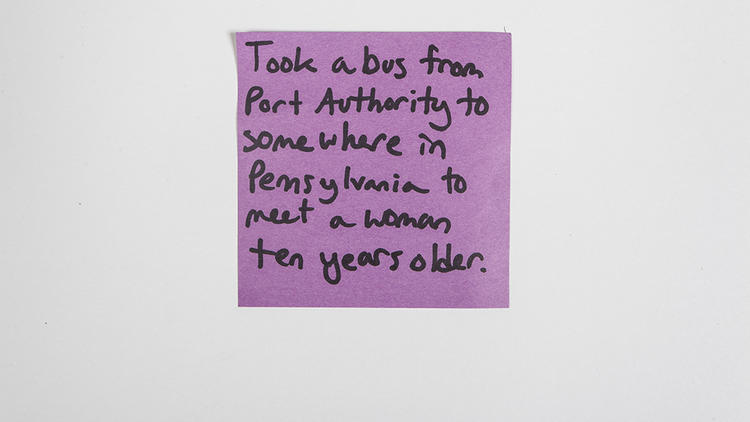 Took a bus from
Port Authority to
somewhere in
Pensylvania to
meet a woman
ten years older.